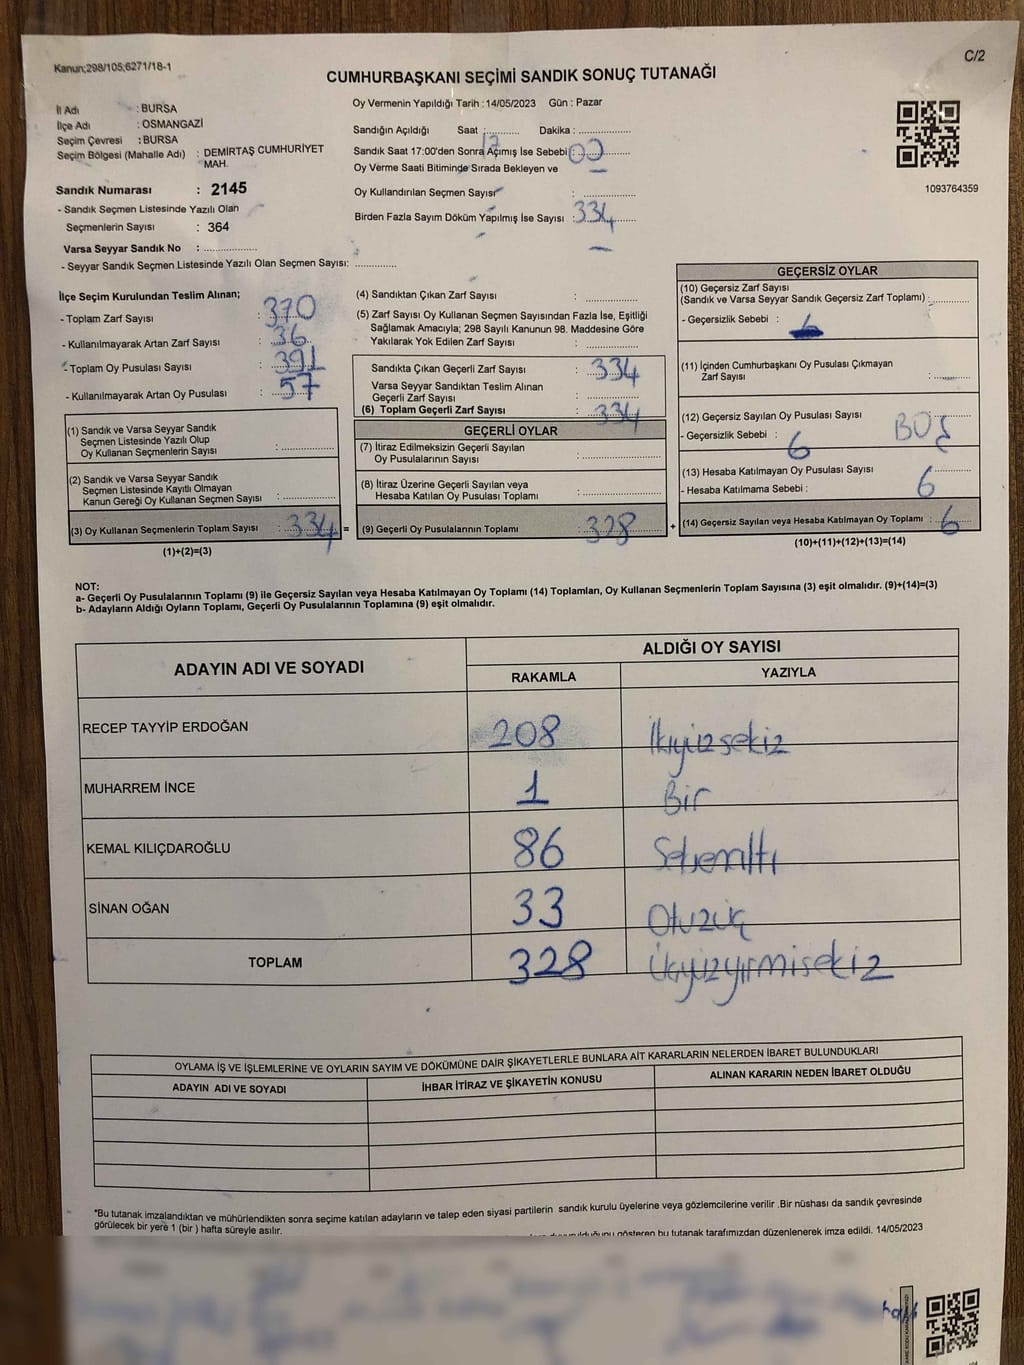 Kanun;298/105;6271/18-1
C/2
CUMHURBAŞKANI SEÇİMİ SANDIK SONUÇ TUTANAĞI
İl Adı : BURSA
İlçe Adı : OSMANGAZİ
Seçim Çevresi : BURSA
Seçim Bölgesi (Mahalle Adı) : DEMİRTAŞ CUMHURİYET MAH.
Sandık Numarası : 2145
- Sandık Seçmen Listesinde Yazılı Olan
Seçmenlerin Sayısı : 364
Varsa Seyyar Sandık No : ..............
- Seyyar Sandık Seçmen Listesinde Yazılı Olan Seçmen Sayısı: ............
Oy Vermenin Yapıldığı Tarih : 14/05/2023 Gün : Pazar
Sandığın Açıldığı Saat : 17 Dakika : 00
Sandık Saat 17:00'den Sonra Açımış İse Sebebi :
Oy Verme Saati Bitiminde Sırada Bekleyen ve
Oy Kullandırılan Seçmen Sayısı : ..............
Birden Fazla Sayım Döküm Yapılmış İse Sayısı : 334
1093764359
İlçe Seçim Kurulundan Teslim Alınan;
- Toplam Zarf Sayısı : 370
- Kullanılmayarak Artan Zarf Sayısı : 36
- Toplam Oy Pusulası Sayısı : 391
- Kullanılmayarak Artan Oy Pusulası : 57
(1) Sandık ve Varsa Seyyar Sandık
Seçmen Listesinde Yazılı Olup
Oy Kullanan Seçmenlerin Sayısı : ..............
(2) Sandık ve Varsa Seyyar Sandık
Seçmen Listesinde Kayıtlı Olmayan
Kanun Gereği Oy Kullanan Seçmen Sayısı : ..............
(3) Oy Kullanan Seçmenlerin Toplam Sayısı : 334 =
(1)+(2)=(3)
(4) Sandıktan Çıkan Zarf Sayısı : ..............
(5) Zarf Sayısı Oy Kullanan Seçmen Sayısından Fazla İse, Eşitliği
Sağlamak Amacıyla; 298 Sayılı Kanunun 98. Maddesine Göre
Yakılarak Yok Edilen Zarf Sayısı : ..............
Sandıkta Çıkan Geçerli Zarf Sayısı : 334
Varsa Seyyar Sandıktan Teslim Alınan
Geçerli Zarf Sayısı : ..............
(6) Toplam Geçerli Zarf Sayısı : 334
GEÇERLİ OYLAR
(7) İtiraz Edilmeksizin Geçerli Sayılan
Oy Pusulalarının Sayısı : ..............
(8) İtiraz Üzerine Geçerli Sayılan veya
Hesaba Katılan Oy Pusulası Toplamı : ..............
(9) Geçerli Oy Pusulalarının Toplamı : 328 +
GEÇERSİZ OYLAR
(10) Geçersiz Zarf Sayısı
(Sandık ve Varsa Seyyar Sandık Geçersiz Zarf Toplamı) : ..........
- Geçersizlik Sebebi : 6
(11) İçinden Cumhurbaşkanı Oy Pusulası Çıkmayan
Zarf Sayısı : ..........
(12) Geçersiz Sayılan Oy Pusulası Sayısı ..........
- Geçersizlik Sebebi : 6 BOŞ
(13) Hesaba Katılmayan Oy Pusulası Sayısı ..........
- Hesaba Katılmama Sebebi : 6
(14) Geçersiz Sayılan veya Hesaba Katılmayan Oy Toplamı : 6
(10)+(11)+(12)+(13)=(14)
NOT:
a- Geçerli Oy Pusulalarının Toplamı (9) ile Geçersiz Sayılan veya Hesaba Katılmayan Oy Toplamı (14) Toplamları, Oy Kullanan Seçmenlerin Toplam Sayısına (3) eşit olmalıdır. (9)+(14)=(3)
b- Adayların Aldığı Oyların Toplamı, Geçerli Oy Pusulalarının Toplamına (9) eşit olmalıdır.
ADAYIN ADI VE SOYADI
ALDIĞI OY SAYISI
RAKAMLA YAZIYLA
RECEP TAYYİP ERDOĞAN 208 İkiyüzsekiz
MUHARREM İNCE 1 Bir
KEMAL KILIÇDAROĞLU 86 Seksenaltı
SİNAN OĞAN 33 Otuzüç
TOPLAM 328 Üçyüzyirmisekiz
OYLAMA İŞ VE İŞLEMLERİNE VE OYLARIN SAYIM VE DÖKÜMÜNE DAİR ŞİKAYETLERLE BUNLARA AİT KARARLARIN NELERDEN İBARET BULUNDUKLARI
ADAYIN ADI VE SOYADI İHBAR İTİRAZ VE ŞİKAYETİN KONUSU ALINAN KARARIN NEDEN İBARET OLDUĞU
"Bu tutanak imzalandıktan ve mühürlendikten sonra seçime katılan adayların ve talep eden siyasi partilerin sandık kurulu üyelerine veya gözlemcilerine verilir .Bir nüshası da sandık çevresinde
görülecek bir yere 1 (bir ) hafta süreyle asılır.
gösteren bu tutanak tarafımızdan düzenlenerek imza edildi. 14/05/2023